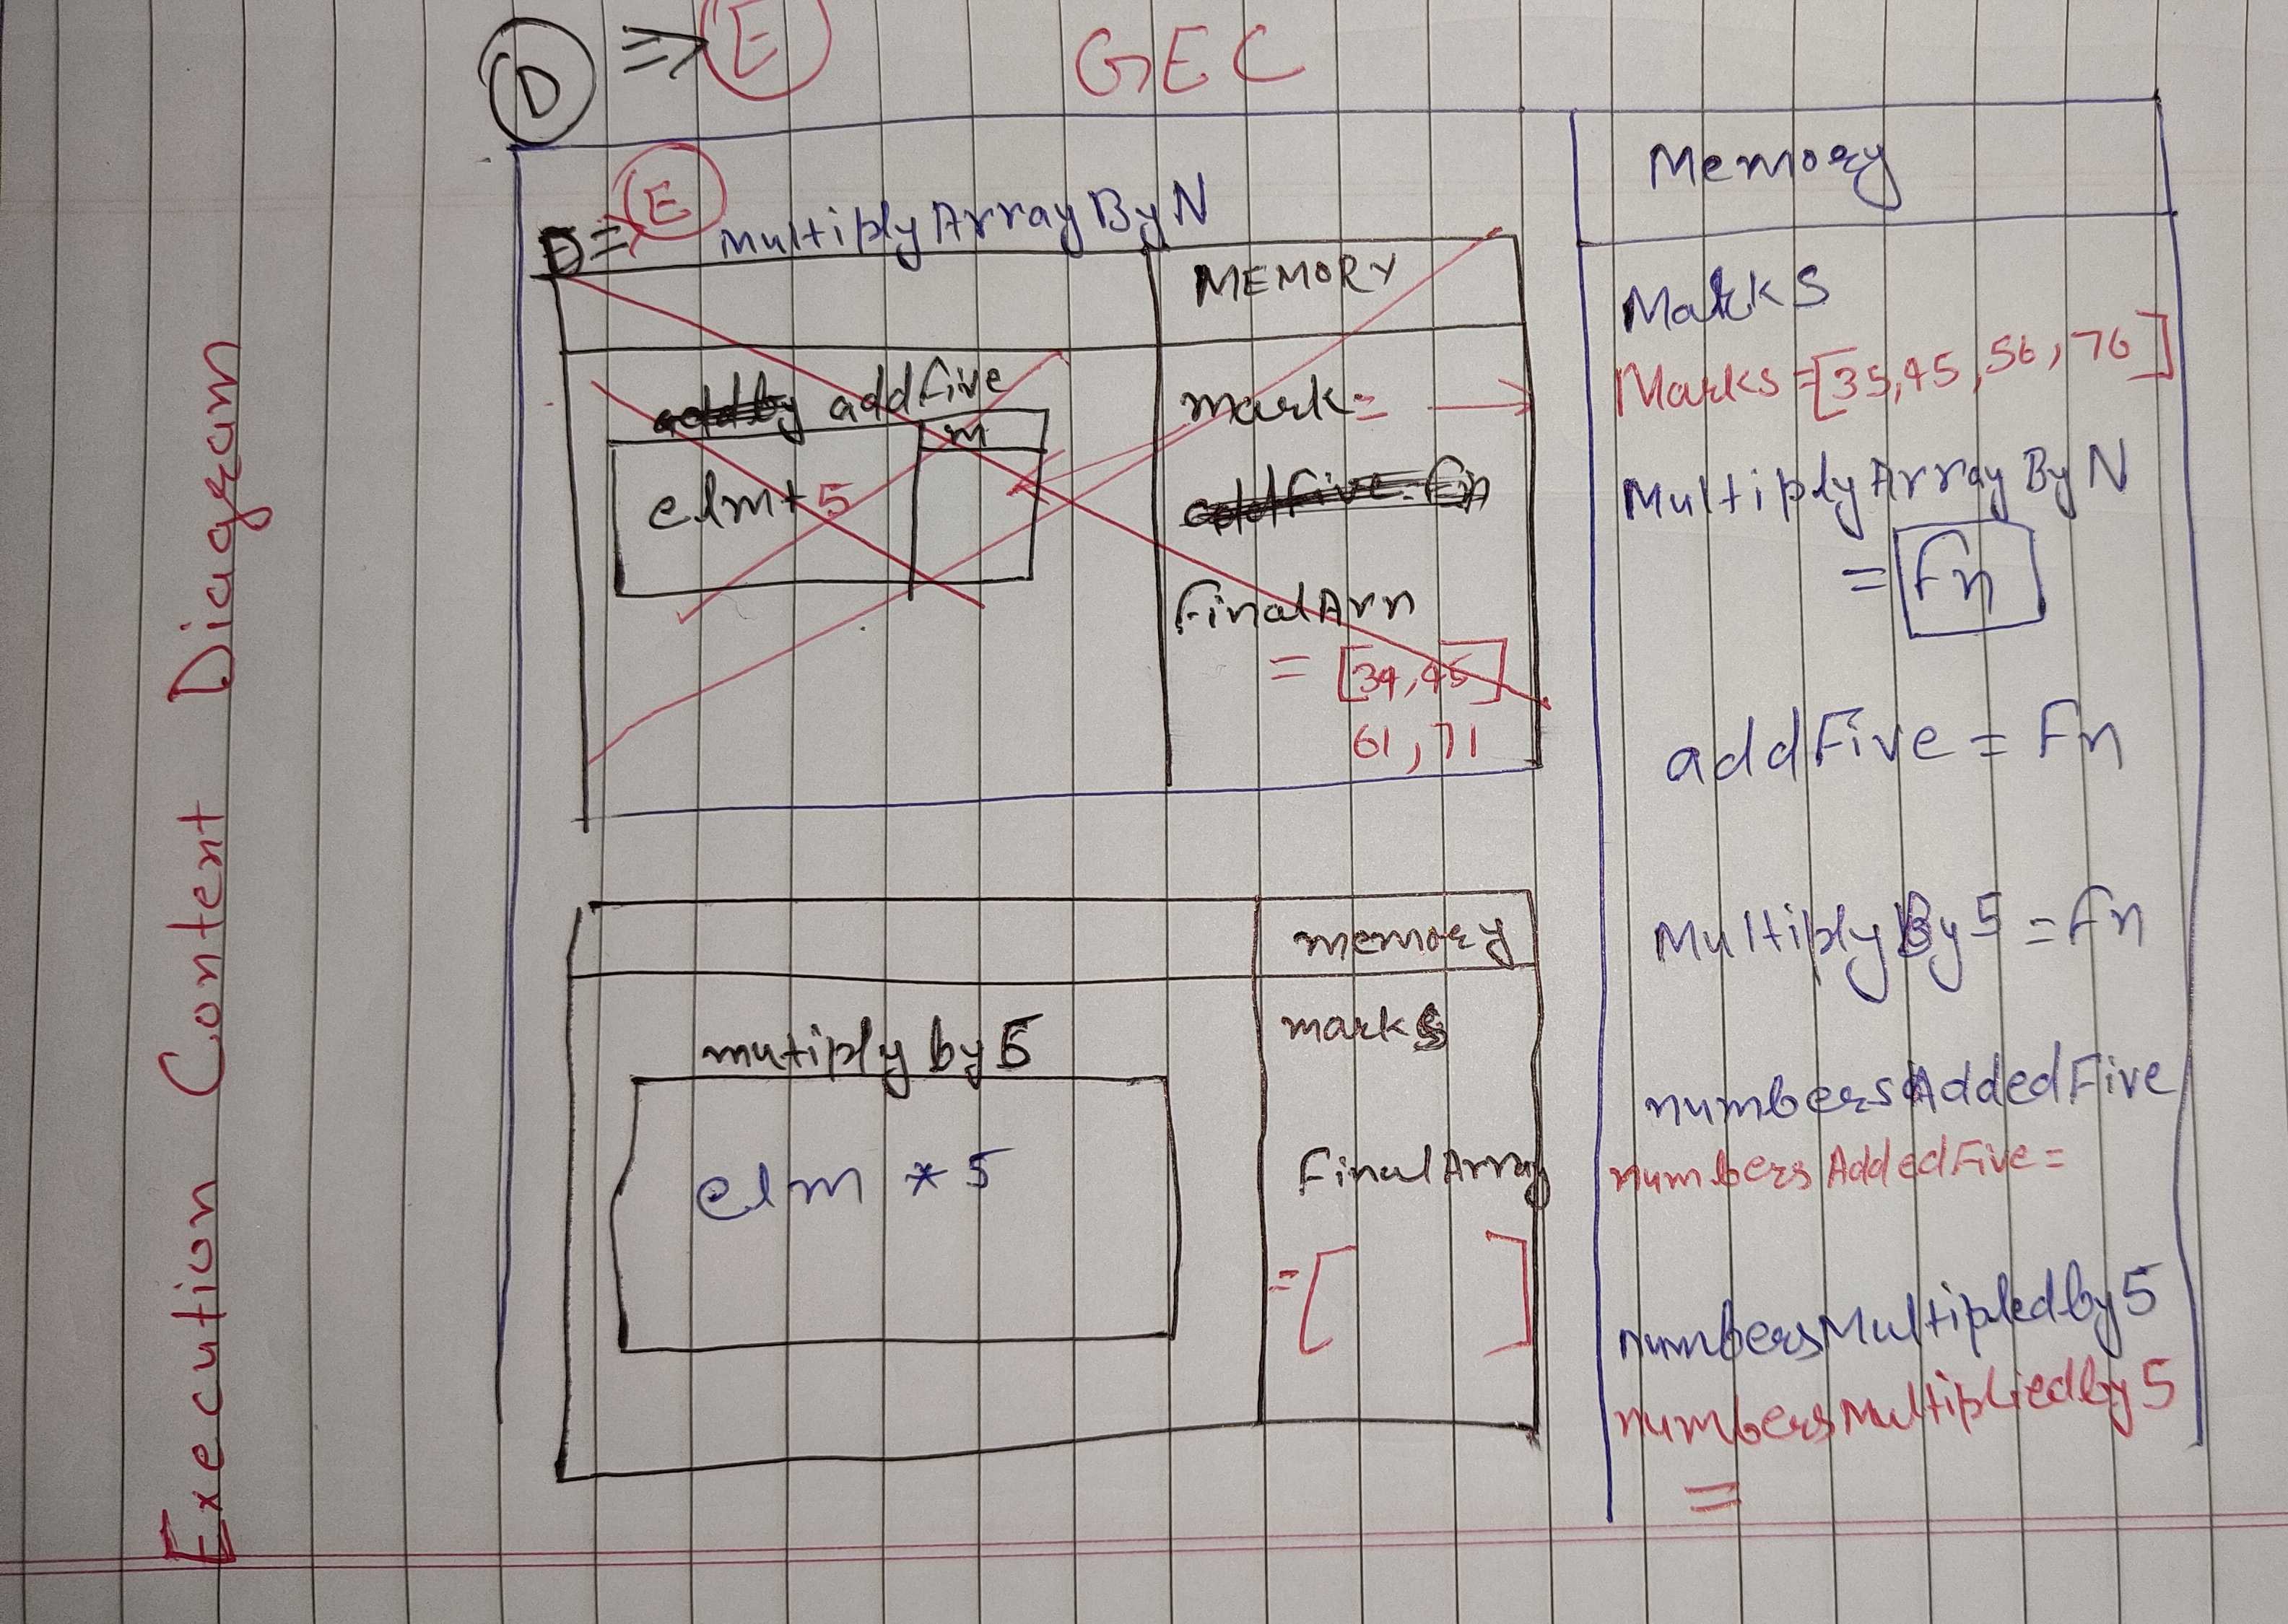 D => E GEC
Execution Content Diagram
D => E MultiplyArrayByN
MEMORY
addby addFive
m
elm + 5
mark = →
addFive = Fn
FinalArr
= [34, 45]
61, 71
memory
mutiply by 5
elm * 5
marks
FinalArray
= [ ]
Memory
Marks
Marks = [35, 45, 56, 76]
MultiplyArrayByN
= Fn
addFive = Fn
MultiplyBy5 = Fn
numbersAddedFive
numbersAddedFive =
numbersMultipledby5
numbersMultipliedby5
=